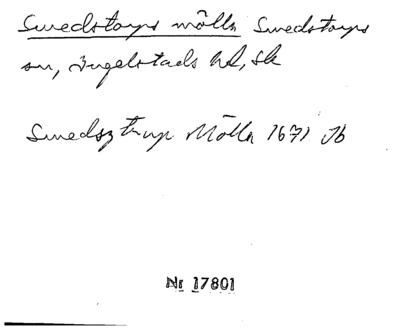 Smedstorps mölla Smedstorps
sn, Ingelstads hd, Sk
Smedsztrup Mölla 1671 Jb
Nr 17801